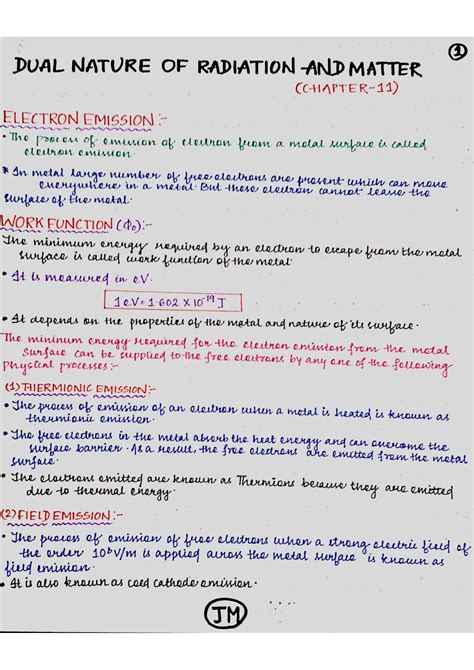 1
DUAL NATURE OF RADIATION AND MATTER
(CHAPTER-11)
ELECTRON EMISSION :-
• The process of emission of electron from a metal surface is called
electron emission.
* In metal large number of free electrons are present which can move
everywhere in a metal. But these electron cannot leave the
surface of the metal.
WORK FUNCTION (Φ₀):-
The minimum energy required by an electron to escape from the metal
surface is called work function of the metal.
• It is measured in eV.
1 eV = 1.602 × 10⁻¹⁹ J
• It depends on the properties of the metal and nature of its surface.
The minimum energy required for the electron emission from the metal
surface can be supplied to the free electrons by any one of the following
physical processes:-
(1) THERMIONIC EMISSION:-
• The process of emission of an electron when a metal is heated is known as
thermionic emission.
• The free electrons in the metal absorb the heat energy and can overcome the
surface barrier. As a result, the free electrons are emitted from the metal
surface.
• The electrons emitted are known as Thermions because they are emitted
due to thermal energy.
(2) FIELD EMISSION :-
• The process of emission of free electrons when a strong electric field of
the order 10⁶V/m is applied across the metal surface is known as
field emission.
• It is also known as cold cathode emission.
JM